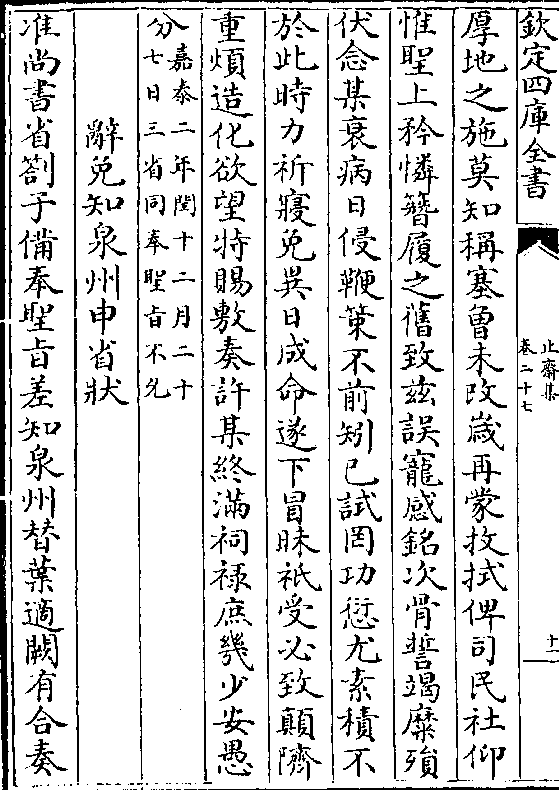 欽定四庫全書
止齋集
卷二十七
十一
厚地之施莫知稱塞曾未改歲再蒙抆拭俾司民社仰
惟聖上矜憐簪履之舊致兹誤寵感銘次骨誓竭糜殞
伏念某衰病日侵鞭策不前矧已試罔功愆尤素積不
於此時力祈寢免異日成命遂下冒昧祇受必致顛隮
重煩造化欲望特賜敷奏許某終滿祠禄庶幾少安愚
分嘉泰二年閏十二月二十
七日三省同奉聖旨不允
辭免知泉州申省狀
准尚書省劄子備奉聖旨差知泉州替葉適闕有合奏